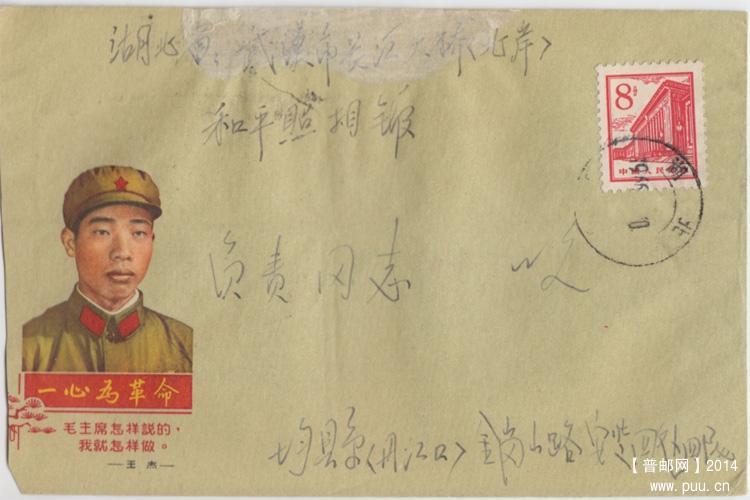 湖北省:武漢市长江大桥(北岸)
和平照相
8分
中国人民邮政
湖
北
负责同志 收
一心為革命
毛主席怎样説的,
我就怎样做。
—王杰—
均县(丹江口)
【普邮网】2014
www.puu.cn